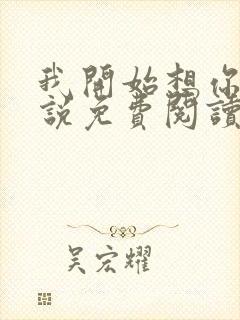 我開始想你
說免費閱讀
吴宏耀